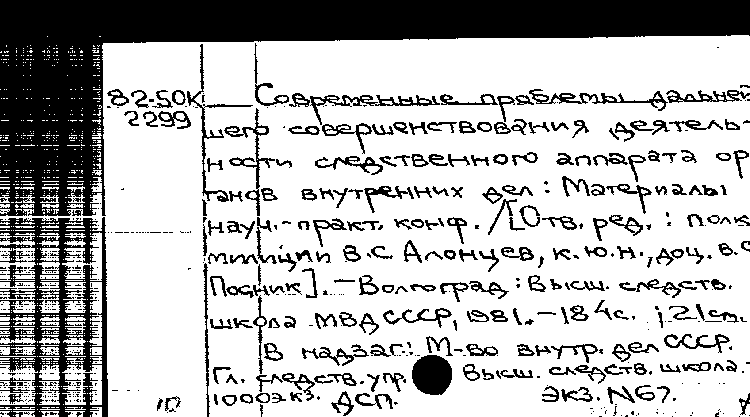 82-50К Современные проблемы дальней
2299 шего совершенствования деятель-
ности следственного аппарата ор
ганов внутренних дел : Материалы
науч.-практ. конф. /[Отв. ред. : полк
милиции В.С. Алонцев, к.ю.н., доц. В.С
Посник]. — Волгоград : Высш. следств.
школа МВД СССР, 1981. - 184с. ; 21см.
В надзаг.: М-во внутр. дел СССР.
Гл. следств. упр. Высш. следств. школа.-
1000экз. ДСП. Экз. №67.
10